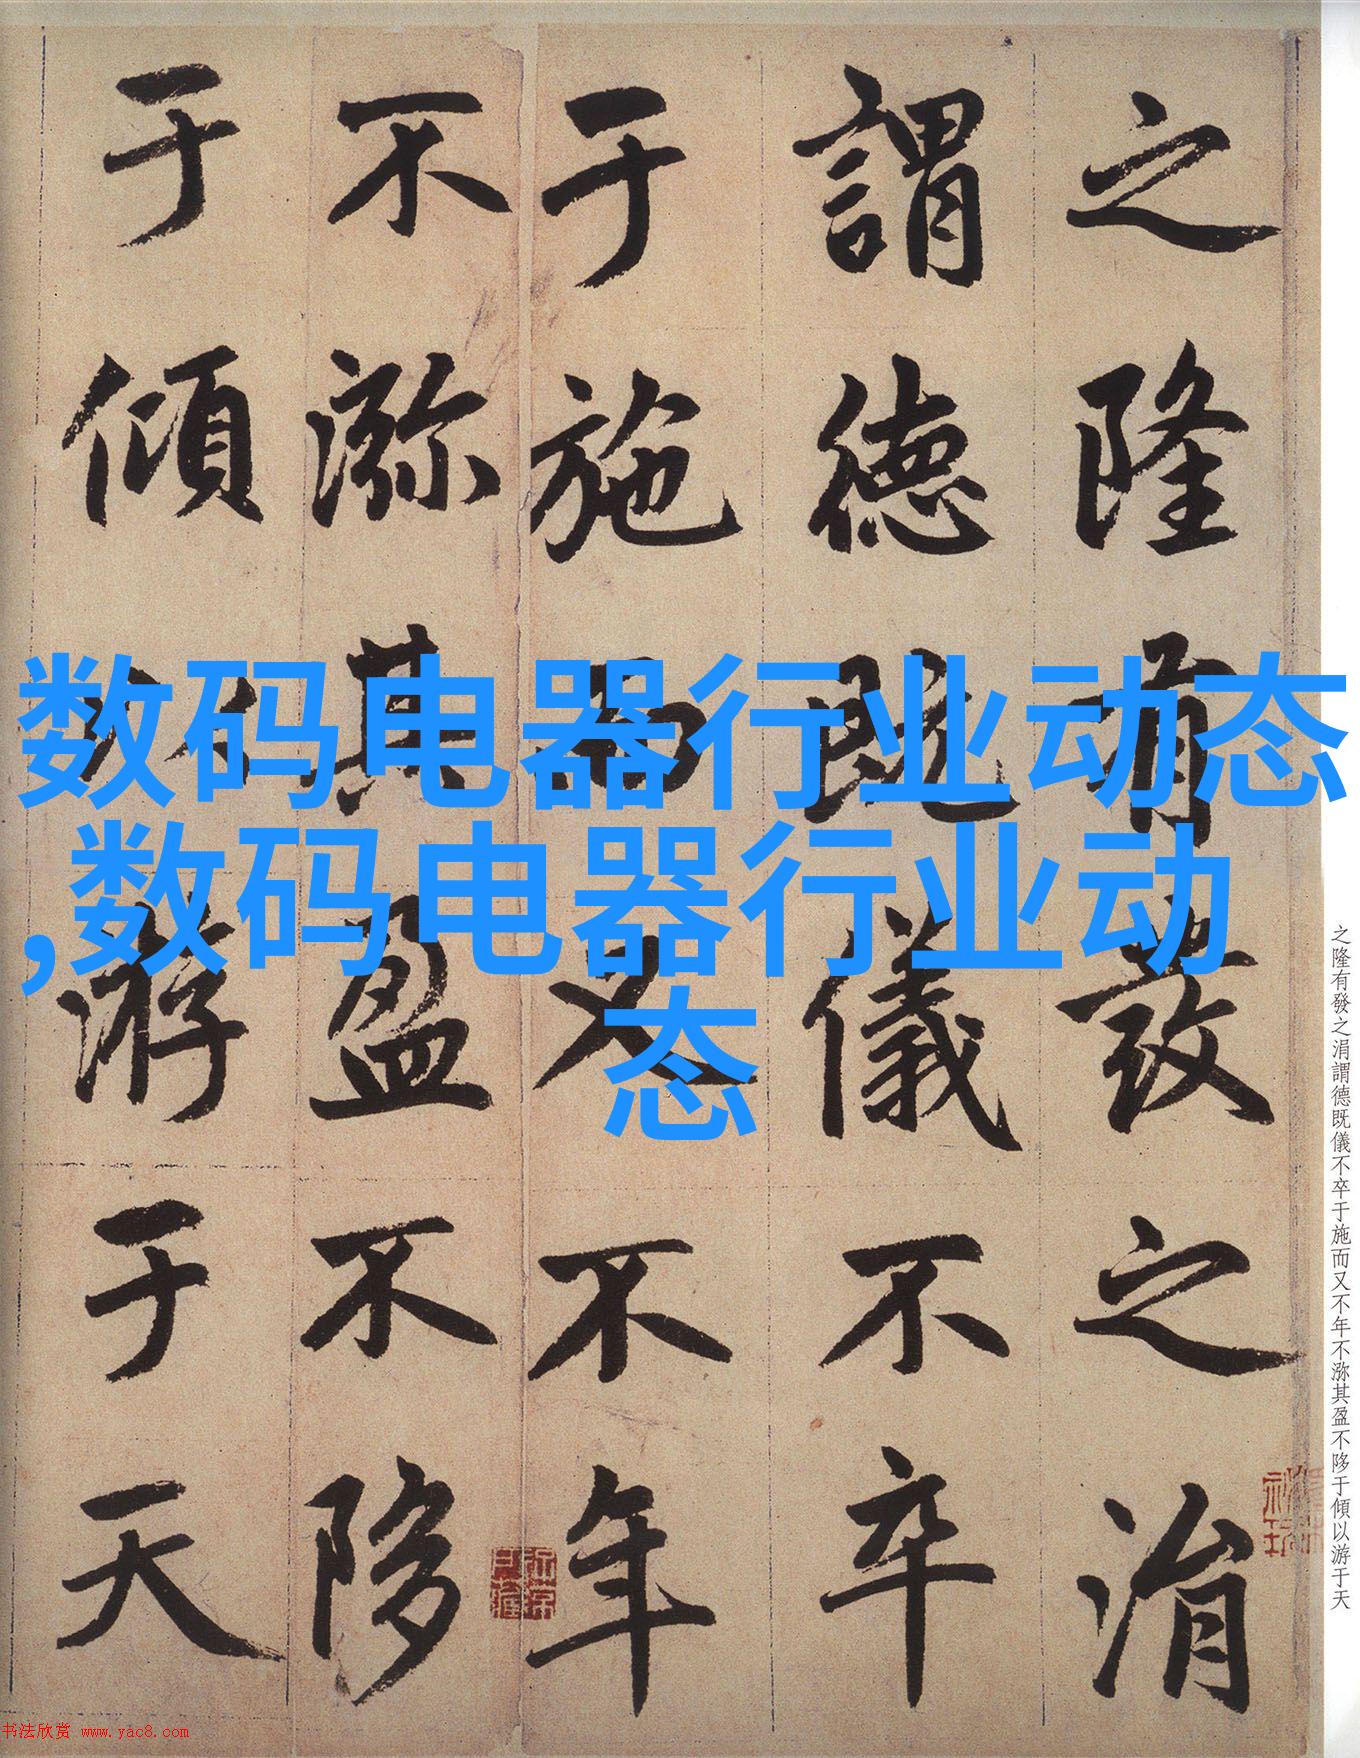 数码电器行业动态
,数码电器行业动
态
之隆有發之涓
謂德既儀不卒
于施而又不年
不㳽其盈不陊
于傾以游于天
之隆有發之涓謂德既儀不卒于施而又不年不㳽其盈不陊于傾以游于天
书法欣赏 www.yac8.com